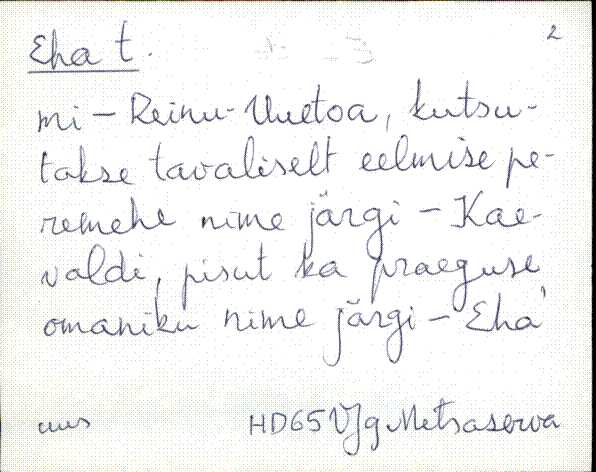 Eha t.
2
mi – Reinu-Uuetoa, kutsu-
takse tavaliselt eelmise pe-
remehe nime järgi – Kae-
valdi, pisut ka praeguse
omaniku nime järgi – Eha'
HD65 VJg Metsaserva